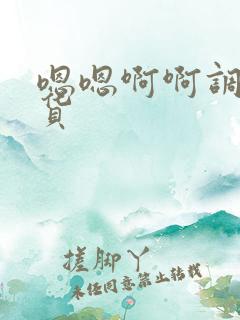 嗯嗯啊啊調
視頁
搓脚丫
未经同意禁止转载